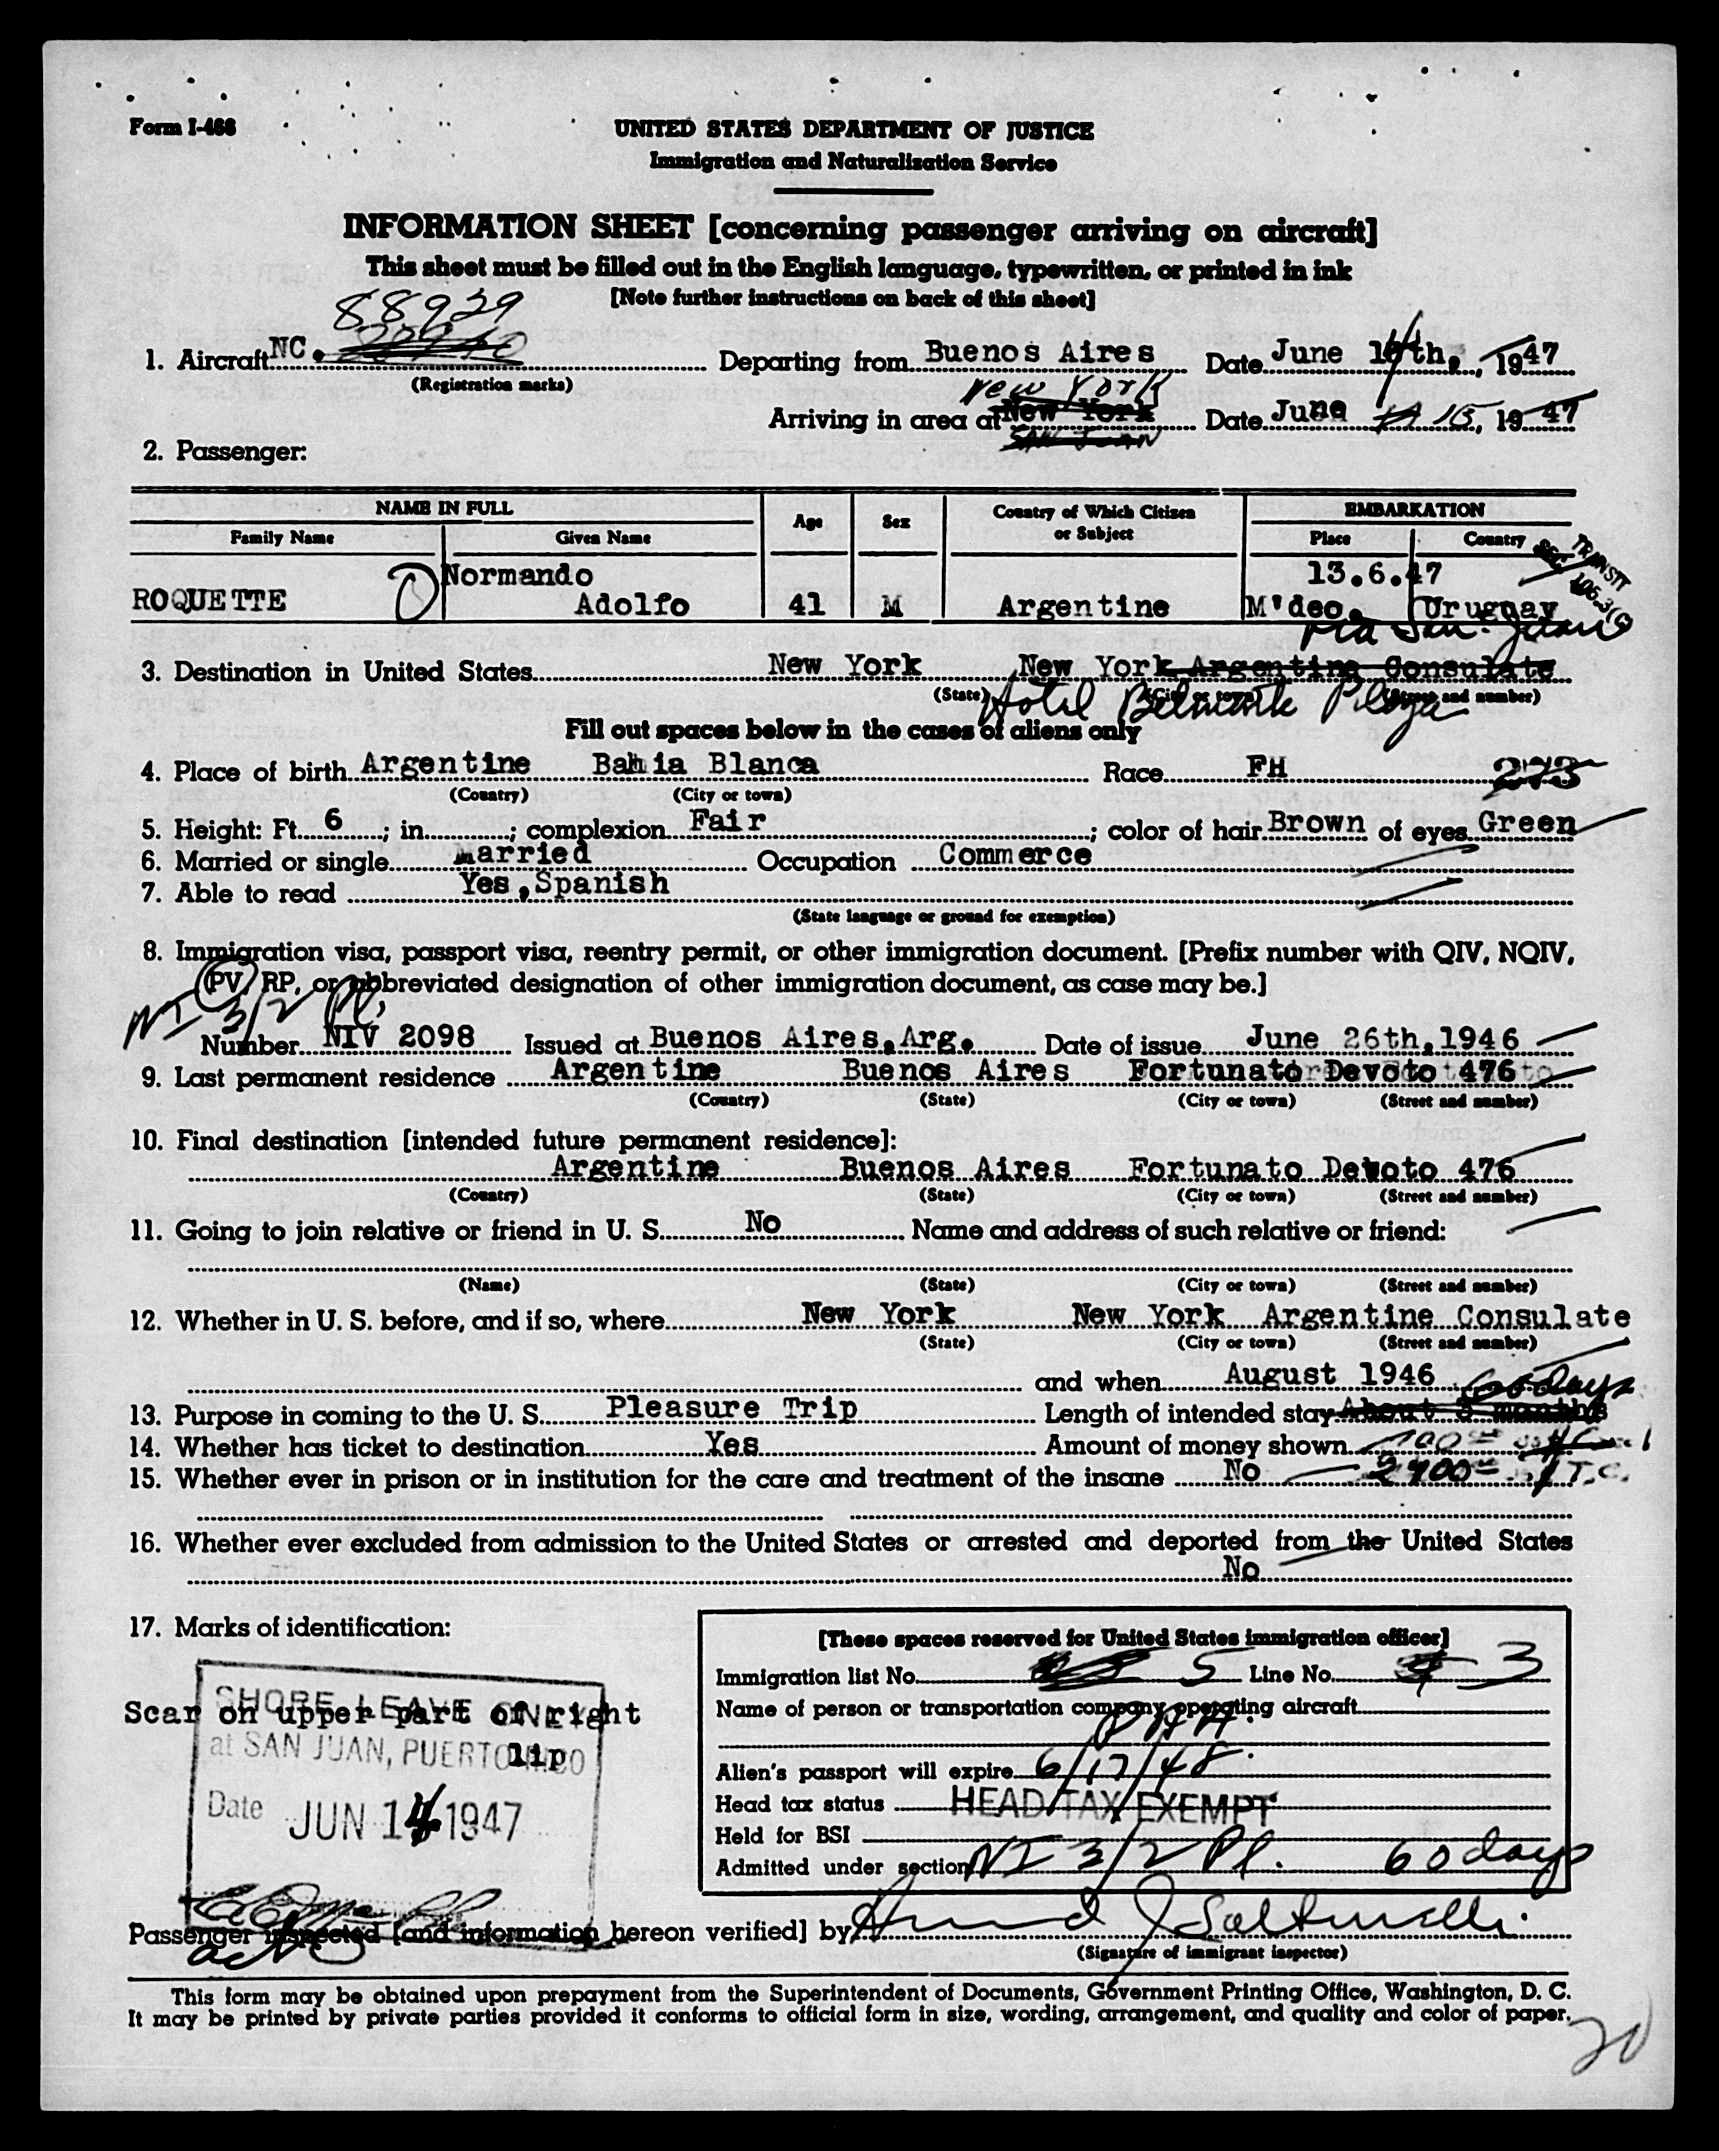 Form I-466
UNITED STATES DEPARTMENT OF JUSTICE
Immigration and Naturalization Service
INFORMATION SHEET [concerning passenger arriving on aircraft]
This sheet must be filled out in the English language, typewritten, or printed in ink
[Note further instructions on back of this sheet]
88929
1. Aircraft NC. Departing from Buenos Aires Date June 14th, 1947
(Registration marks)
New York
Arriving in area at New York Date June 15, 1947
SAN JUAN
2. Passenger:
NAME IN FULL Age Sex Country of Which Citizen or Subject EMBARKATION
Family Name Given Name Place Country
TRANSIT
SEC. 106.3(
Normando 13.6.47
ROQUETTE Adolfo 41 M Argentine M'deo. Uruguay
via San Juan
3. Destination in United States New York New York Argentine Consulate
(State) (City or town) (Street and number)
Hotel Belmont Plaza
Fill out spaces below in the cases of aliens only
4. Place of birth Argentine Bahia Blanca Race FH 273
(Country) (City or town)
5. Height: Ft. 6; in. ; complexion Fair; color of hair Brown of eyes Green
6. Married or single married Occupation Commerce
7. Able to read Yes, Spanish
(State language or ground for exemption)
8. Immigration visa, passport visa, reentry permit, or other immigration document. [Prefix number with QIV, NQIV,
PV, RP, or abbreviated designation of other immigration document, as case may be.]
NI 3/2 Pl.
Number NIV 2098 Issued at Buenos Aires, Arg. Date of issue June 26th, 1946
9. Last permanent residence Argentine Buenos Aires Fortunato Devoto 476
(Country) (State) (City or town) (Street and number)
10. Final destination [intended future permanent residence]:
Argentine Buenos Aires Fortunato Devoto 476
(Country) (State) (City or town) (Street and number)
11. Going to join relative or friend in U. S. No Name and address of such relative or friend:
(Name) (State) (City or town) (Street and number)
12. Whether in U. S. before, and if so, where New York New York Argentine Consulate
(State) (City or town) (Street and number)
and when August 1946 60 days
13. Purpose in coming to the U. S. Pleasure Trip Length of intended stay About 3 months
14. Whether has ticket to destination Yes Amount of money shown
15. Whether ever in prison or in institution for the care and treatment of the insane No T.C.
16. Whether ever excluded from admission to the United States or arrested and deported from the United States
No
17. Marks of identification:
Scar on upper part of right
lip
SHORE LEAVE ONLY
at SAN JUAN, PUERTO RICO
Date JUN 14 1947
[These spaces reserved for United States immigration officer]
Immigration list No. 5 Line No. 3
Name of person or transportation company operating aircraft
PAA.
Alien's passport will expire 6/17/48.
Head tax status HEAD TAX EXEMPT
Held for BSI
Admitted under section NI 3/2 Pl. 60 days
Passenger inspected [and information hereon verified] by
(Signature of immigrant inspector)
This form may be obtained upon prepayment from the Superintendent of Documents, Government Printing Office, Washington, D. C.
It may be printed by private parties provided it conforms to official form in size, wording, arrangement, and quality and color of paper.
20